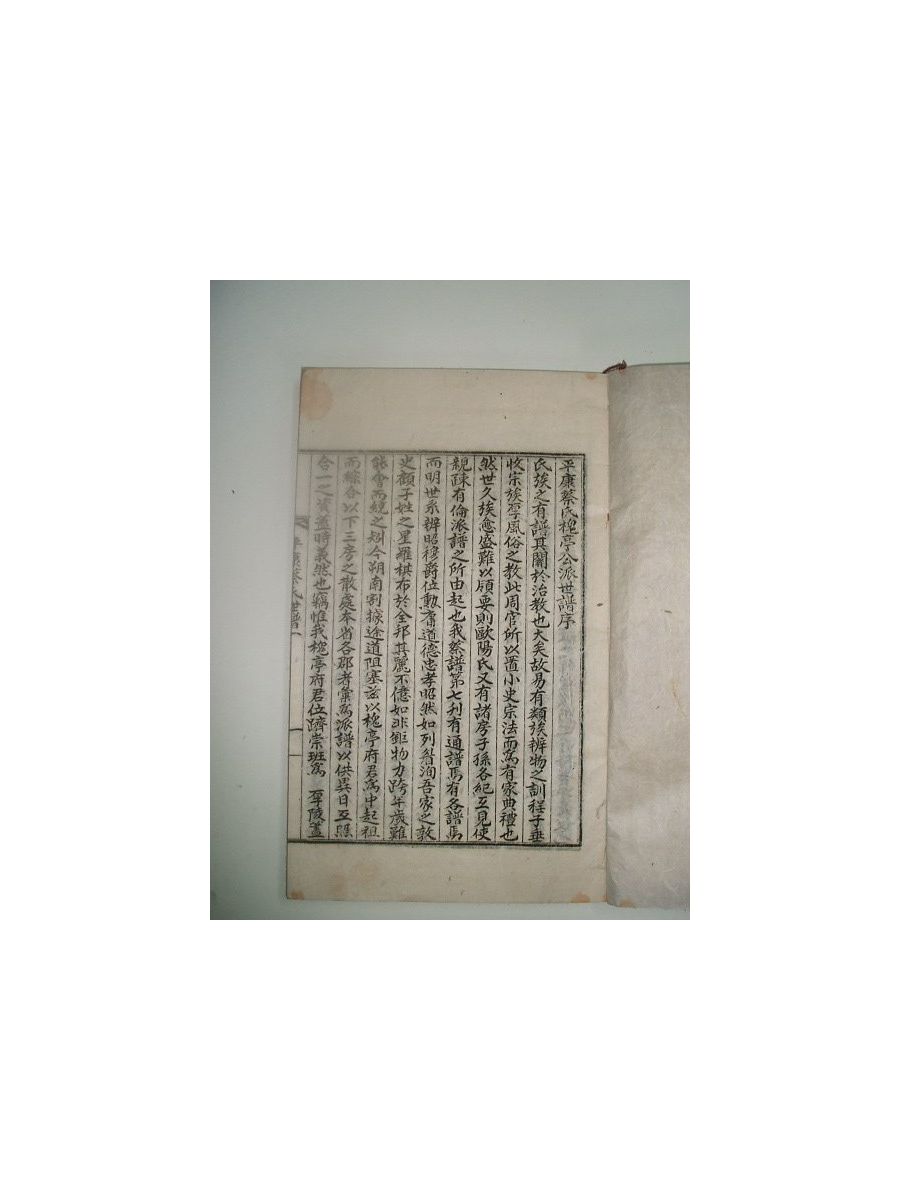 平康蔡氏槐亭公派世譜序
氏族之有譜其關於治教也大矣故易有類族辨物之訓程子垂
收宗族厚風俗之教此周官所以置小史宗法而爲有家典禮也
然世久族愈盛難以頎要則歐陽氏又有諸房子孫各紀互見使
親疎有倫派譜之所由起也我蔡譜第七刋有通譜焉有各譜焉
而明世系辨昭穆爵位勲庸道德忠孝昭然如列眉洵吾家之敦
史顧子姓之星羅棋布於全邦其麗不億如非鉅物力跨年歲難
能會而統之矧今朔南割據途道阻塞玆以槐亭府君爲中起祖
而綜合以下三房之散處本省各郡者彙爲派譜以供異日互照
合一之資蓋時義然也竊惟我槐亭府君位躋崇班爲 陵蓋
平康蔡氏世譜 一